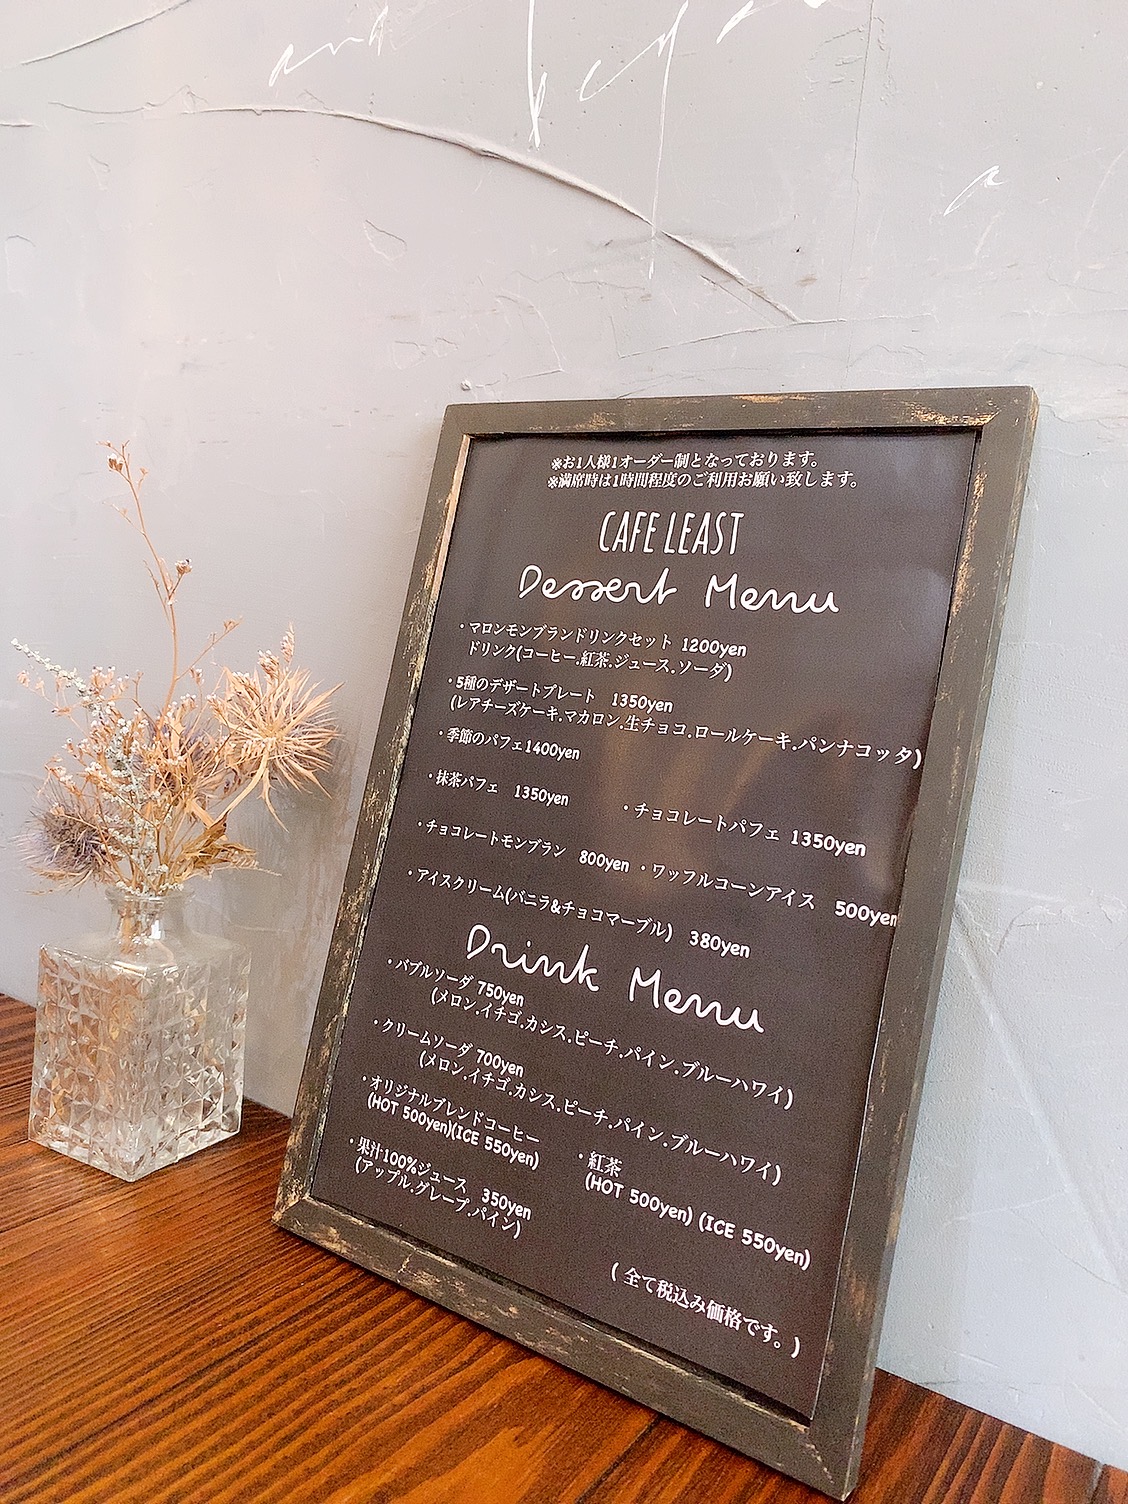 ※お1人様1オーダー制となっております。
※満席時は1時間程度のご利用お願い致します。
CAFE LEAST
Dessert Menu
・マロンモンブランドリンクセット 1200yen
ドリンク(コーヒー.紅茶.ジュース.ソーダ)
・5種のデザートプレート 1350yen
(レアチーズケーキ.マカロン.生チョコ.ロールケーキ.パンナコッタ)
・季節のパフェ1400yen
・抹茶パフェ 1350yen ・チョコレートパフェ 1350yen
・チョコレートモンブラン 800yen ・ワッフルコーンアイス 500yen
・アイスクリーム(バニラ&チョコマーブル) 380yen
Drink Menu
・バブルソーダ 750yen
(メロン.イチゴ.カシス.ピーチ.パイン.ブルーハワイ)
・クリームソーダ 700yen
(メロン.イチゴ.カシス.ピーチ.パイン.ブルーハワイ)
・オリジナルブレンドコーヒー
(HOT 500yen)(ICE 550yen)
・紅茶
(HOT 500yen) (ICE 550yen)
・果汁100%ジュース 350yen
(アップル.グレープ.パイン)
( 全て税込み価格です。)